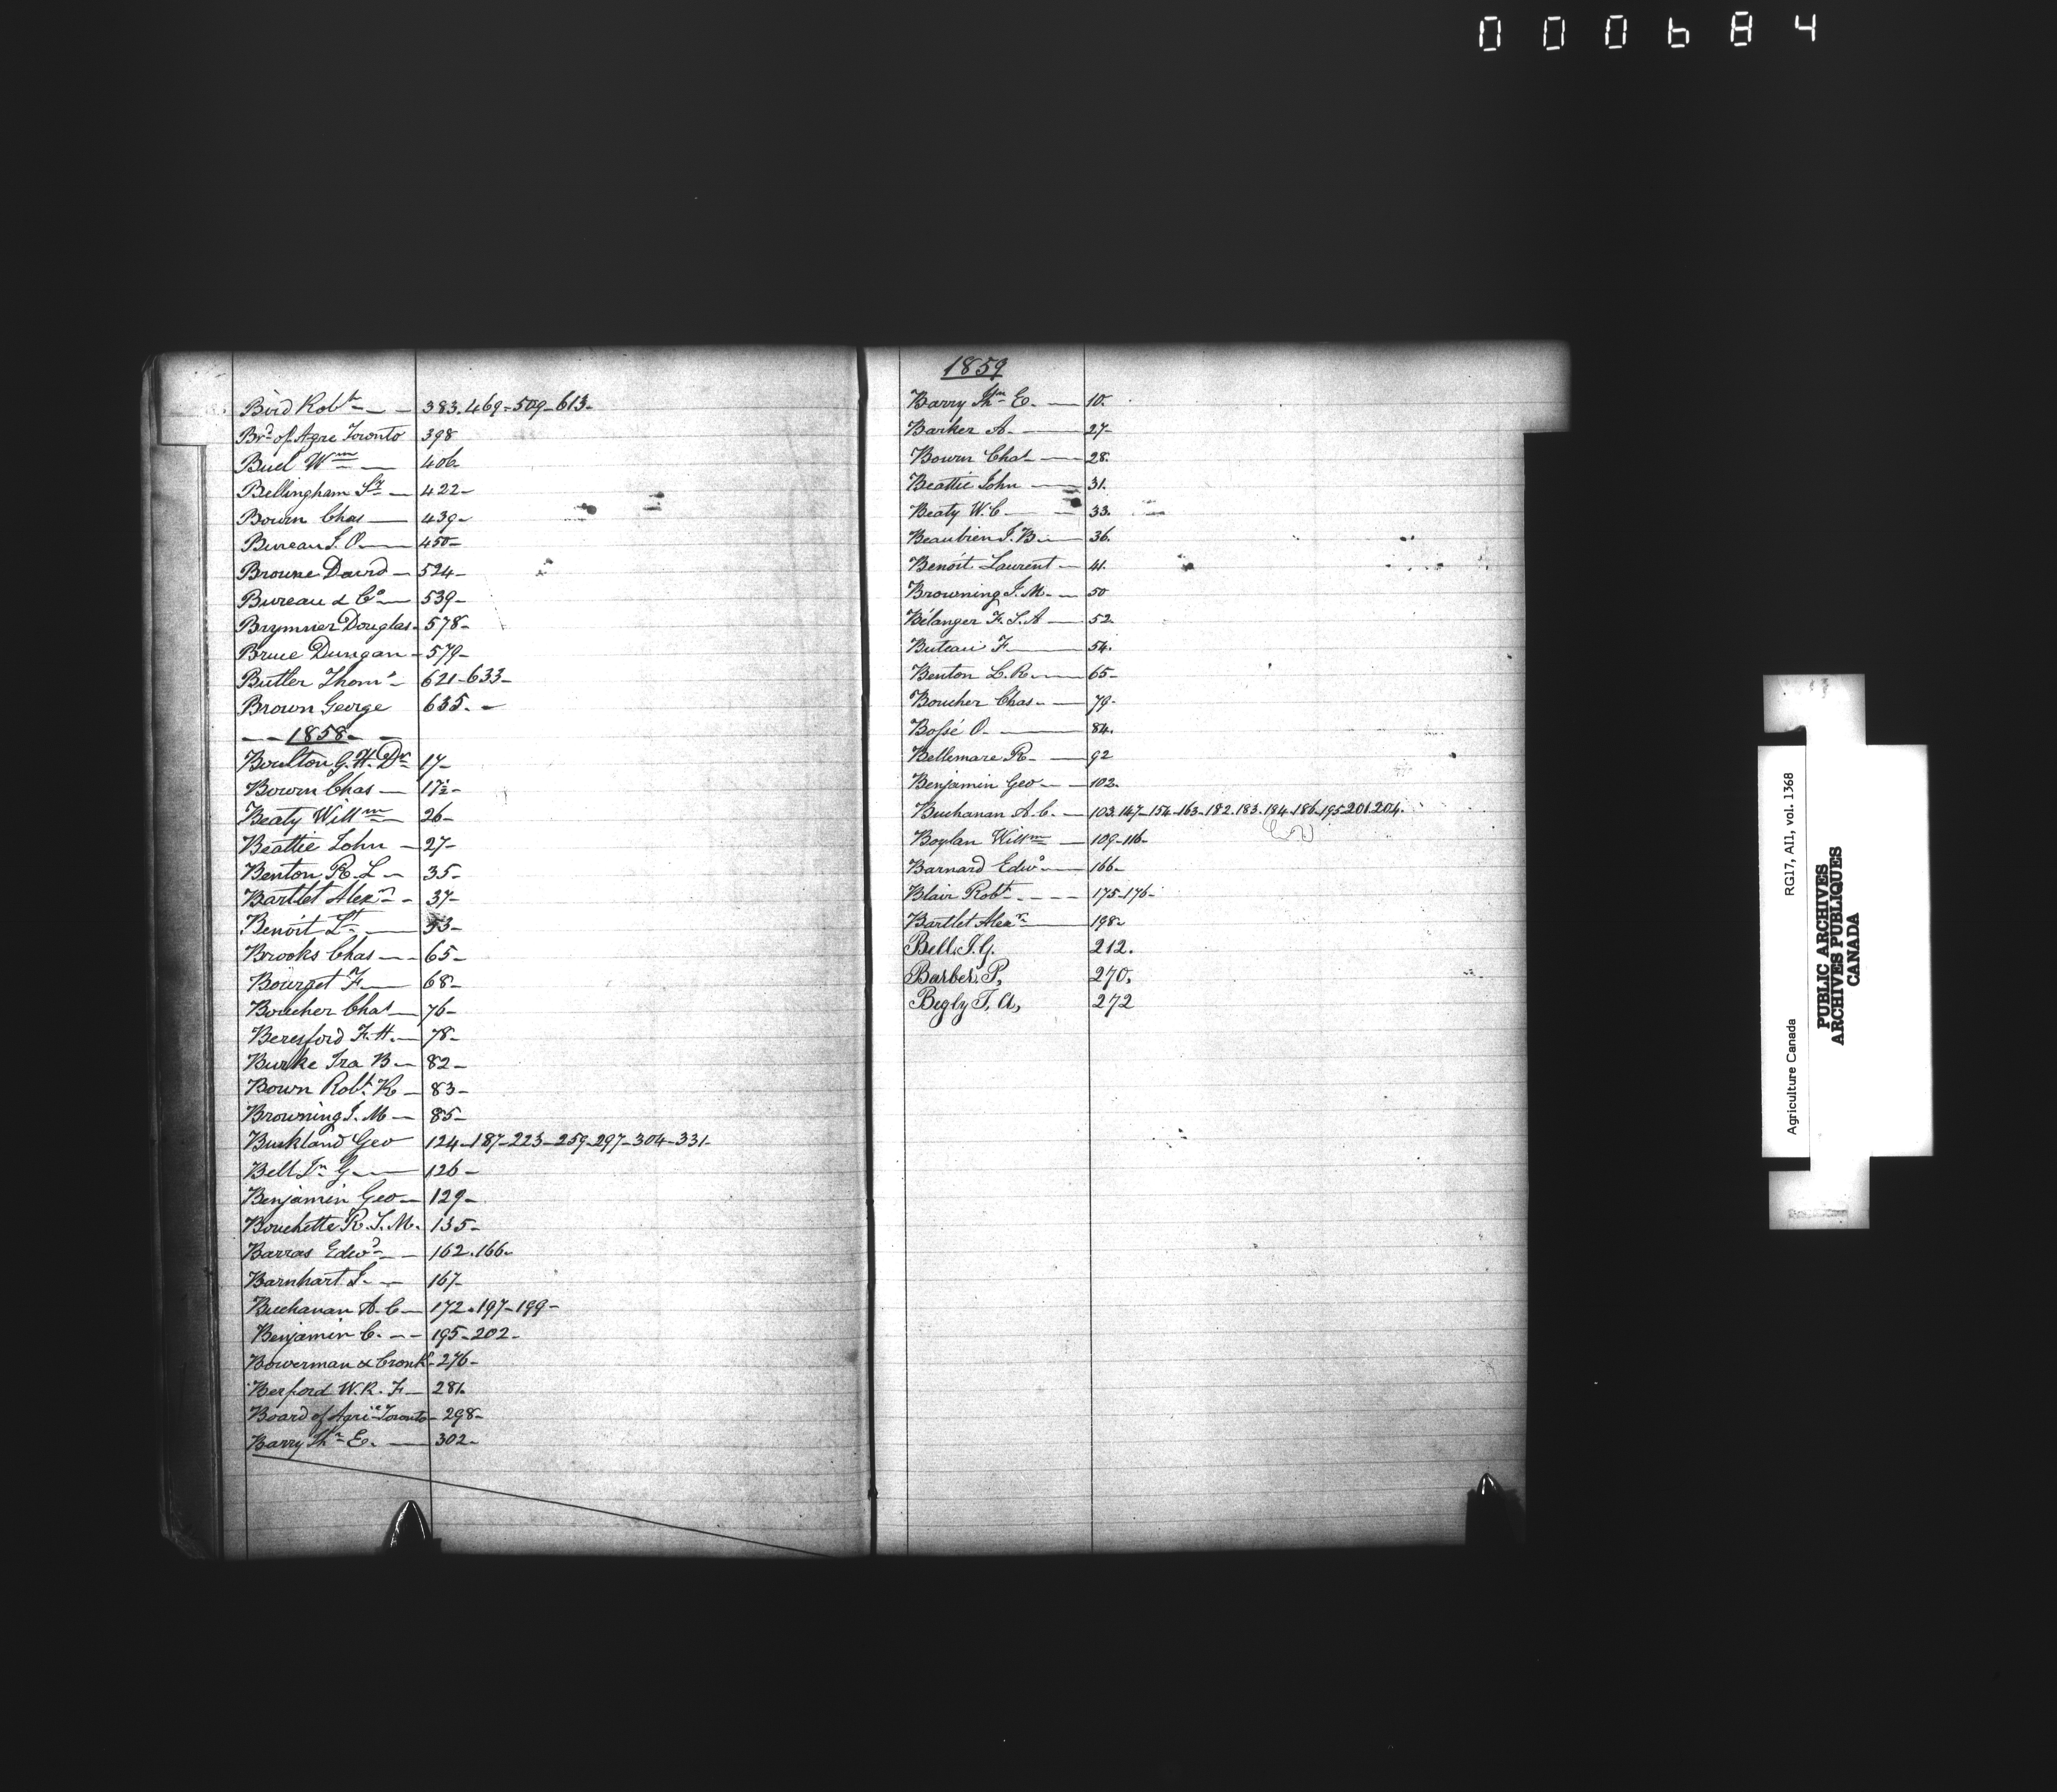 000684
Bird Robt - - 383. 469 - 509 - 613 -
Brd of Agre Toronto 398
Buel Wm - 406
Bellingham Sr - 422 -
Bown Chas - 439 -
Bureau J. O. - 450 -
Browne David - 524 -
Bureau & Co - 539 -
Brymner Douglas - 578 -
Bruce Dungan - 579 -
Butler Thoms - 621 - 633 -
Brown George 635. -
- - 1858 - -
Boulton G. H. Dr 17 -
Bown Chas - 17½ -
Beaty Willm - 26 -
Beattie John - 27 -
Benton R. L - 35 -
Bartlet Alexr - 37 -
Benoit Lt - 53 -
Brooks Chas - - 65 -
Bourget F - 68 -
Boucher Chas - 76 -
Beresford F. H. - 78 -
Burke Ira B - 82 -
Bown Robt R - 83 -
Browning J. M - 85 -
Buckland Geo 124 - 187 - 223 - 259 - 297 - 304 - 331 -
Bell Jn G. - 126 -
Benjamin Geo - 129 -
Bouchette R. S. M. 135 -
Barras Edwd - - 162. 166 -
Barnhart J. - - 167 -
Buchanan A. C - 172. 197 - 199 -
Benjamin C. - - 195 - 202 -
Bowerman & Cronk - 276 -
Berford W. R. F. - 281.
Board of Agri Toronto - 298 -
Barry Ths E. - 302 -
1859
Barry Ths E. - 10.
Barker A. - 27 -
Bown Chas - 28.
Beattie John - 31.
Beaty W. C - - 33.
Beaubien J. B. - 36.
Benoit Laurent - 41.
Browning J. M. - 50
Bélanger F. S. A - 52
Buteau F - 54.
Benton L. R. - 65 -
Boucher Chas. - 79 -
Bossé O. - 84.
Bellemare R - - 92
Benjamin Geo - - 102.
Buchanan A. C. - 103. 147 - 154 - 163 - 182. 183. 184. 186. 195. 201. 204.
Boylan Willm - 109 - 116 -
Barnard Edwd - 166 -
Blair Robt - - - - 175 - 176 -
Bartlet Alexr - 198 -
Bell. J. G. 212.
Barber. P, 270,
Begly T, A, 272
Agriculture Canada RG17, AII, vol. 1368
PUBLIC ARCHIVES
ARCHIVES PUBLIQUES
CANADA